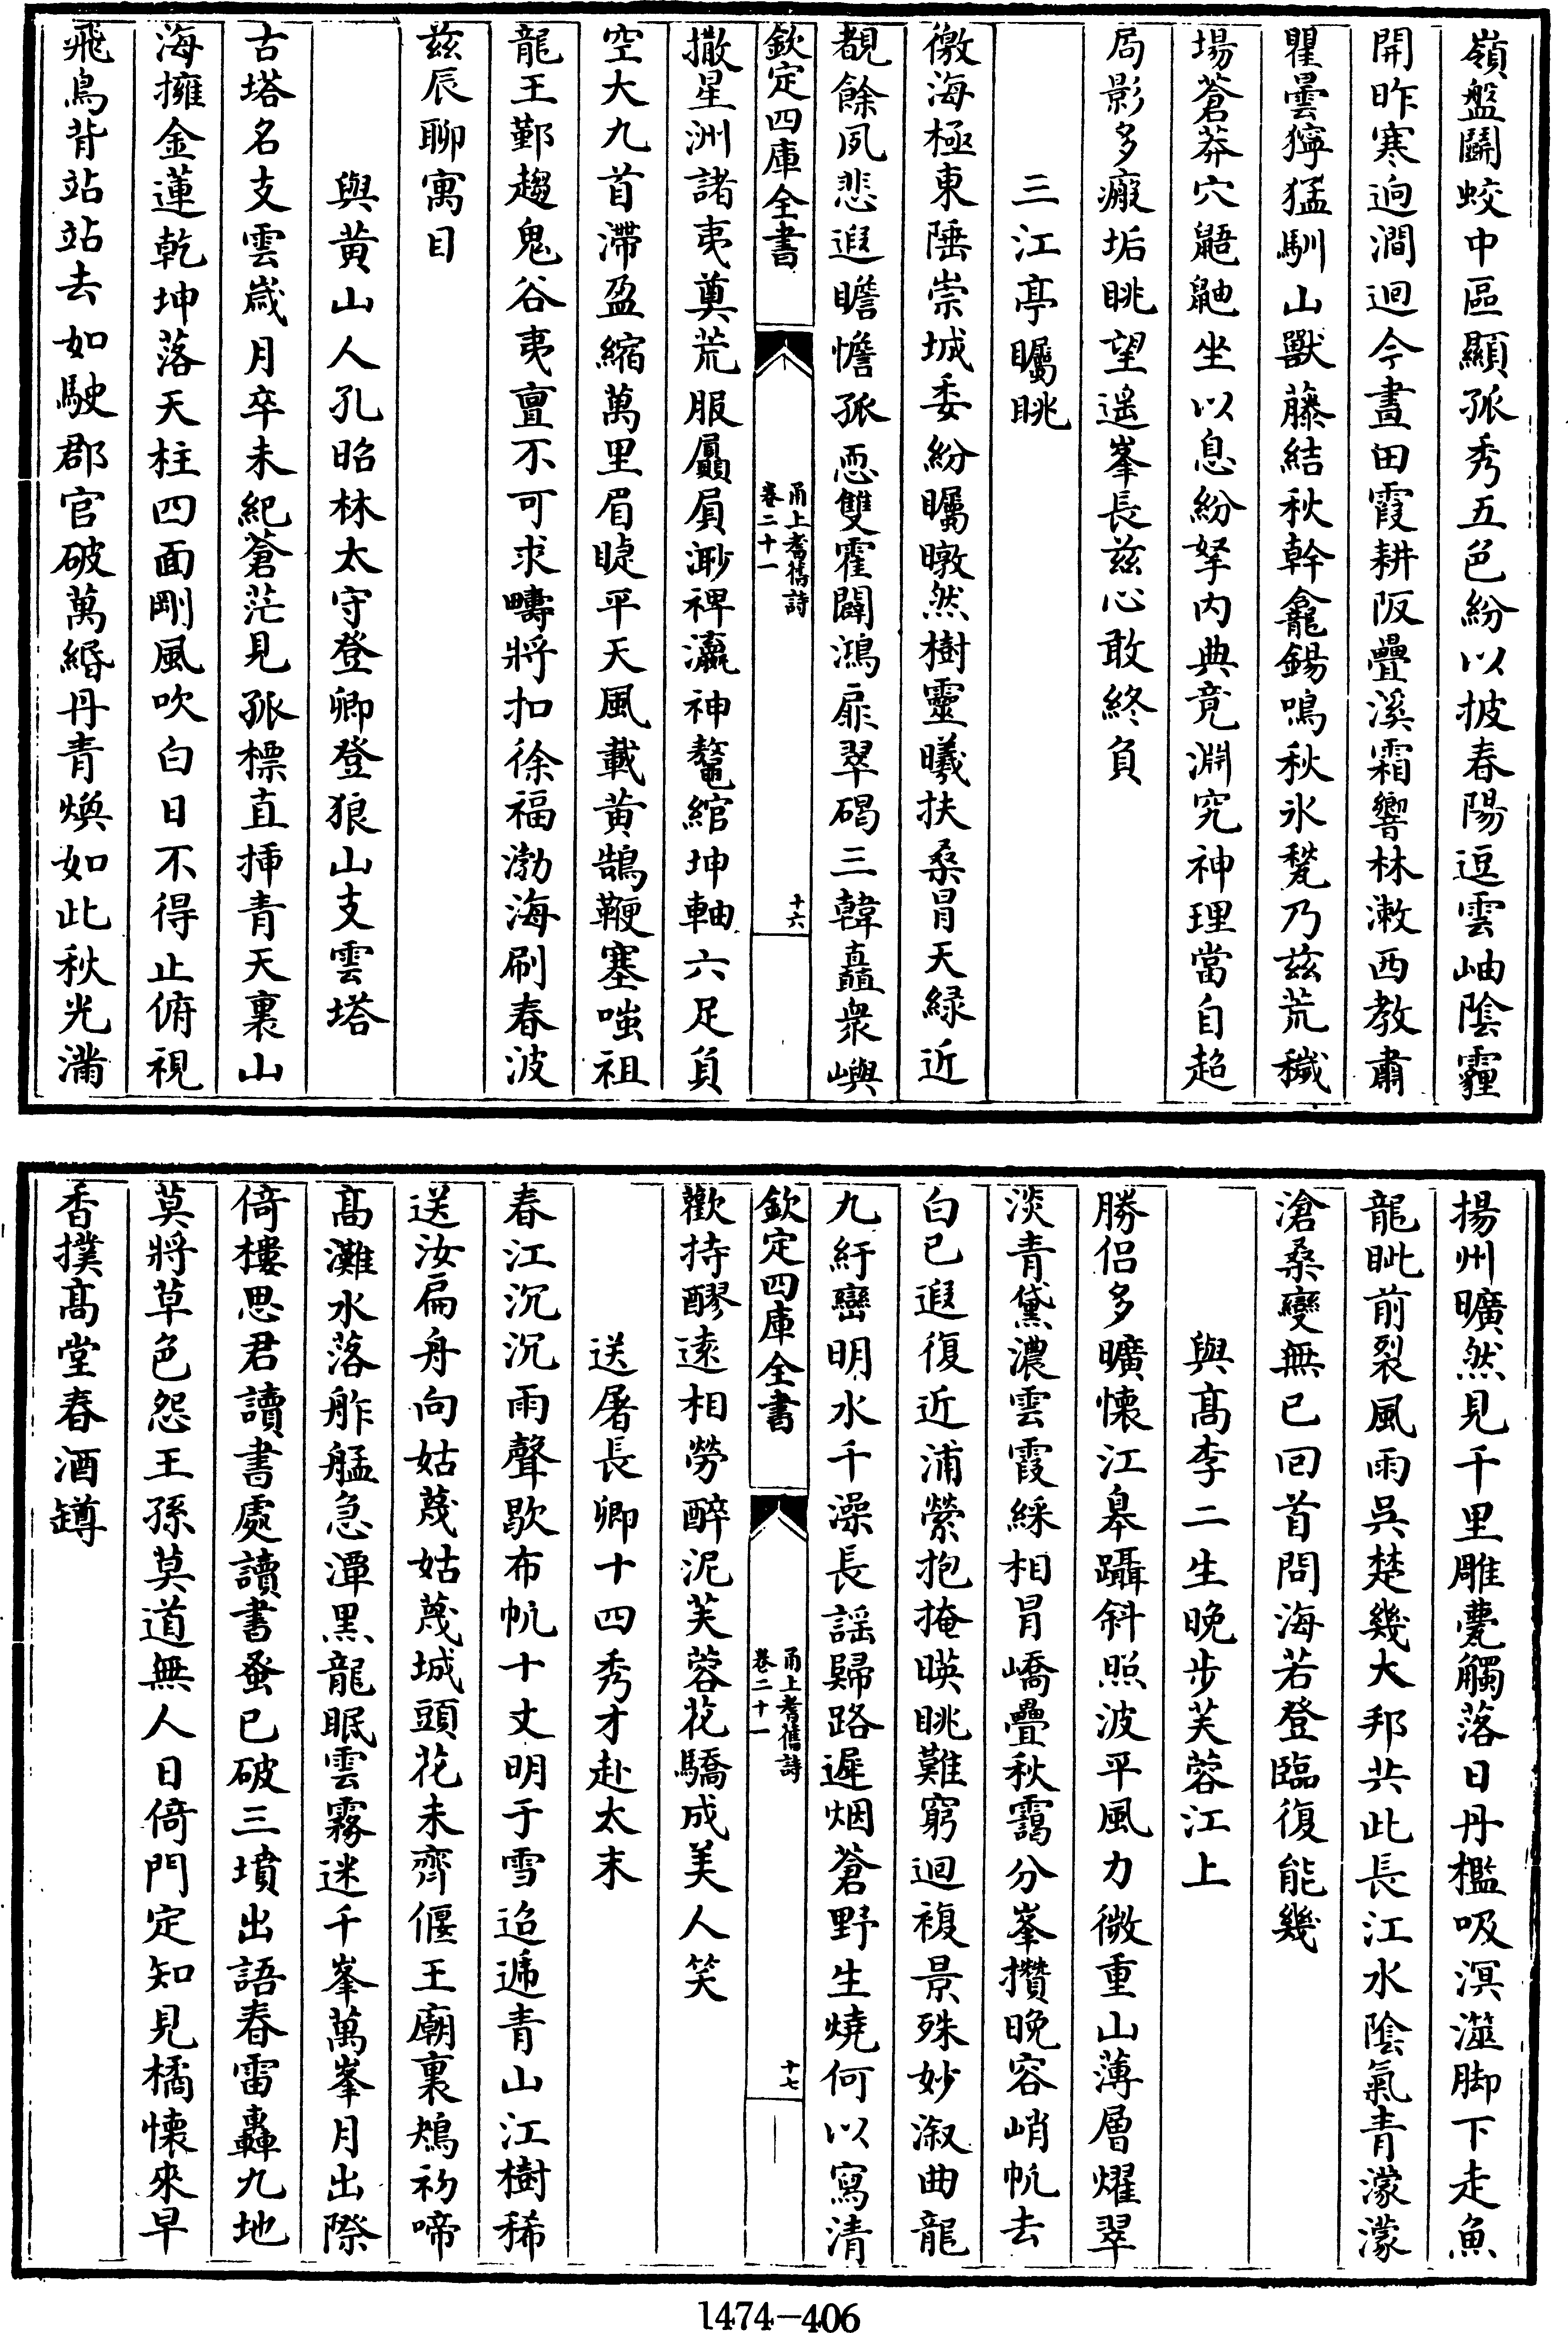 嶺盤鬬蛟中區顯孤秀五色紛以披春陽逗雲岫陰霾
開昨寒逈澗迴今晝田霞耕阪疊溪霜響林漱西教肅
瞿曇獰猛馴山獸藤結秋幹龕錫鳴秋氷甃乃兹荒穢
場蒼莽穴鼯鼬坐以息紛拏内典竟淵究神理當自超
局影多瘢垢眺望遥峯長兹心敢終負
三江亭矚眺
徼海極東陲崇城委紛矚暾然樹靈曦扶桑罥天緑近
覩餘夙悲遐瞻憺孤恧雙霍闢鴻扉翠碣三韓矗衆嶼
欽定四庫全書
甬上耆舊詩
卷二十一
十六
撒星洲諸夷奠荒服贔屓渺裨瀛神鼇綰坤軸六足負
空大九首滯盈縮萬里眉睫平天風載黄鵠鞭塞嗤祖
龍王鄞趨鬼谷夷亶不可求疇將扣徐福渤海刷春波
兹辰聊寓目
與黄山人孔昭林太守登卿登狼山支雲塔
古塔名支雲嵗月卒未紀蒼茫見孤標直揷青天裏山
海擁金蓮乾坤落天柱四面剛風吹白日不得止俯視
飛鳥背站站去如駛郡官破萬緡丹青煥如此秋光滿
揚州曠然見千里雕甍觸落日丹檻吸溟澨脚下走魚
龍眦前裂風雨呉楚幾大邦共此長江水陰氣青濛濛
滄桑變無已囘首問海若登臨復能幾
與髙李二生晚步芙蓉江上
勝侣多曠懷江臯躡斜照波平風力微重山薄層燿翠
淡青黛濃雲霞綵相罥嶠疊秋靄分峯攢晚容峭帆去
白已遐復近浦縈抱掩暎眺難窮迴複景殊妙溆曲龍
九紆巒明水千澡長謡歸路遲烟蒼野生燒何以寫清
欽定四庫全書
甬上耆舊詩
卷二十一
十七
歡持醪逺相勞醉泥芙蓉花驕成美人笑
送屠長卿十四秀才赴太末
春江沉沉雨聲歇布帆十丈明于雪迢遞青山江樹稀
送汝扁舟向姑蔑姑蔑城頭花未齊偃王廟裏鴂初啼
髙灘水落舴艋急潭黒龍眠雲霧迷千峯萬峯月出際
倚樓思君讀書處讀書蚤已破三墳出語春雷轟九地
莫將草色怨王孫莫道無人日倚門定知見橘懷來早
香撲髙堂春酒罇
1474-406